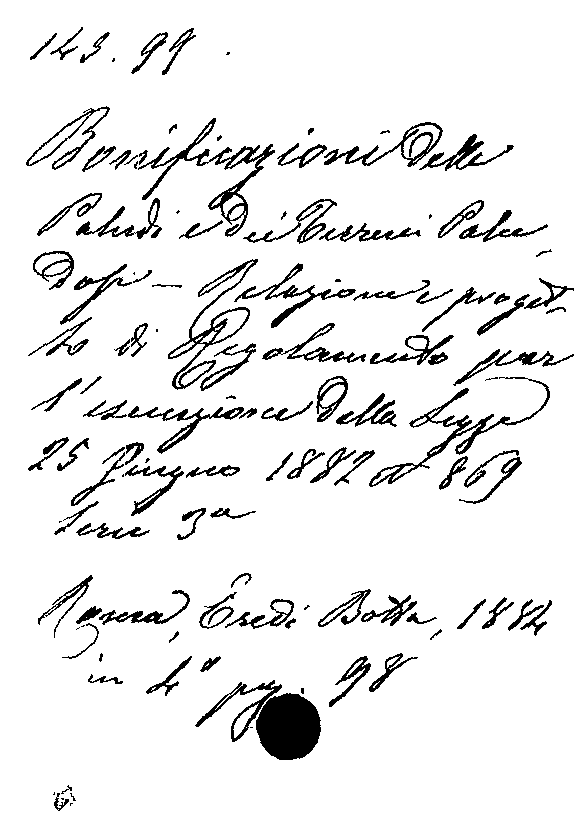 143. 99.
Bonificazioni delle
Paludi e dei Terreni Palu-
dosi — Relazione e proget-
to di Regolamento per
l'esecuzione della Legge
25 Giugno 1882 N° 869
Serie 3a
Roma, Eredi Botta, 1884
in 4° pag. 98